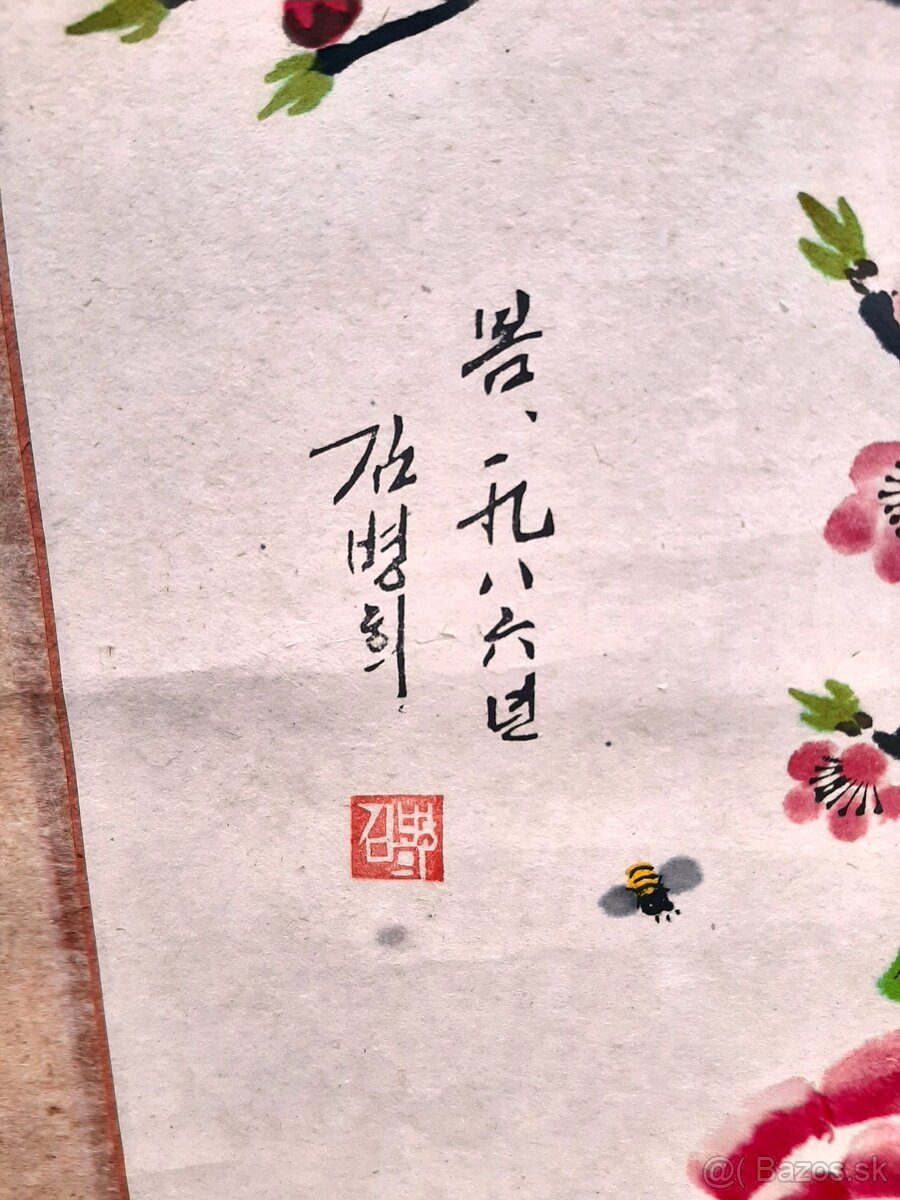 봄、一九八六년
김병희
김병희
@( Bazos.sk